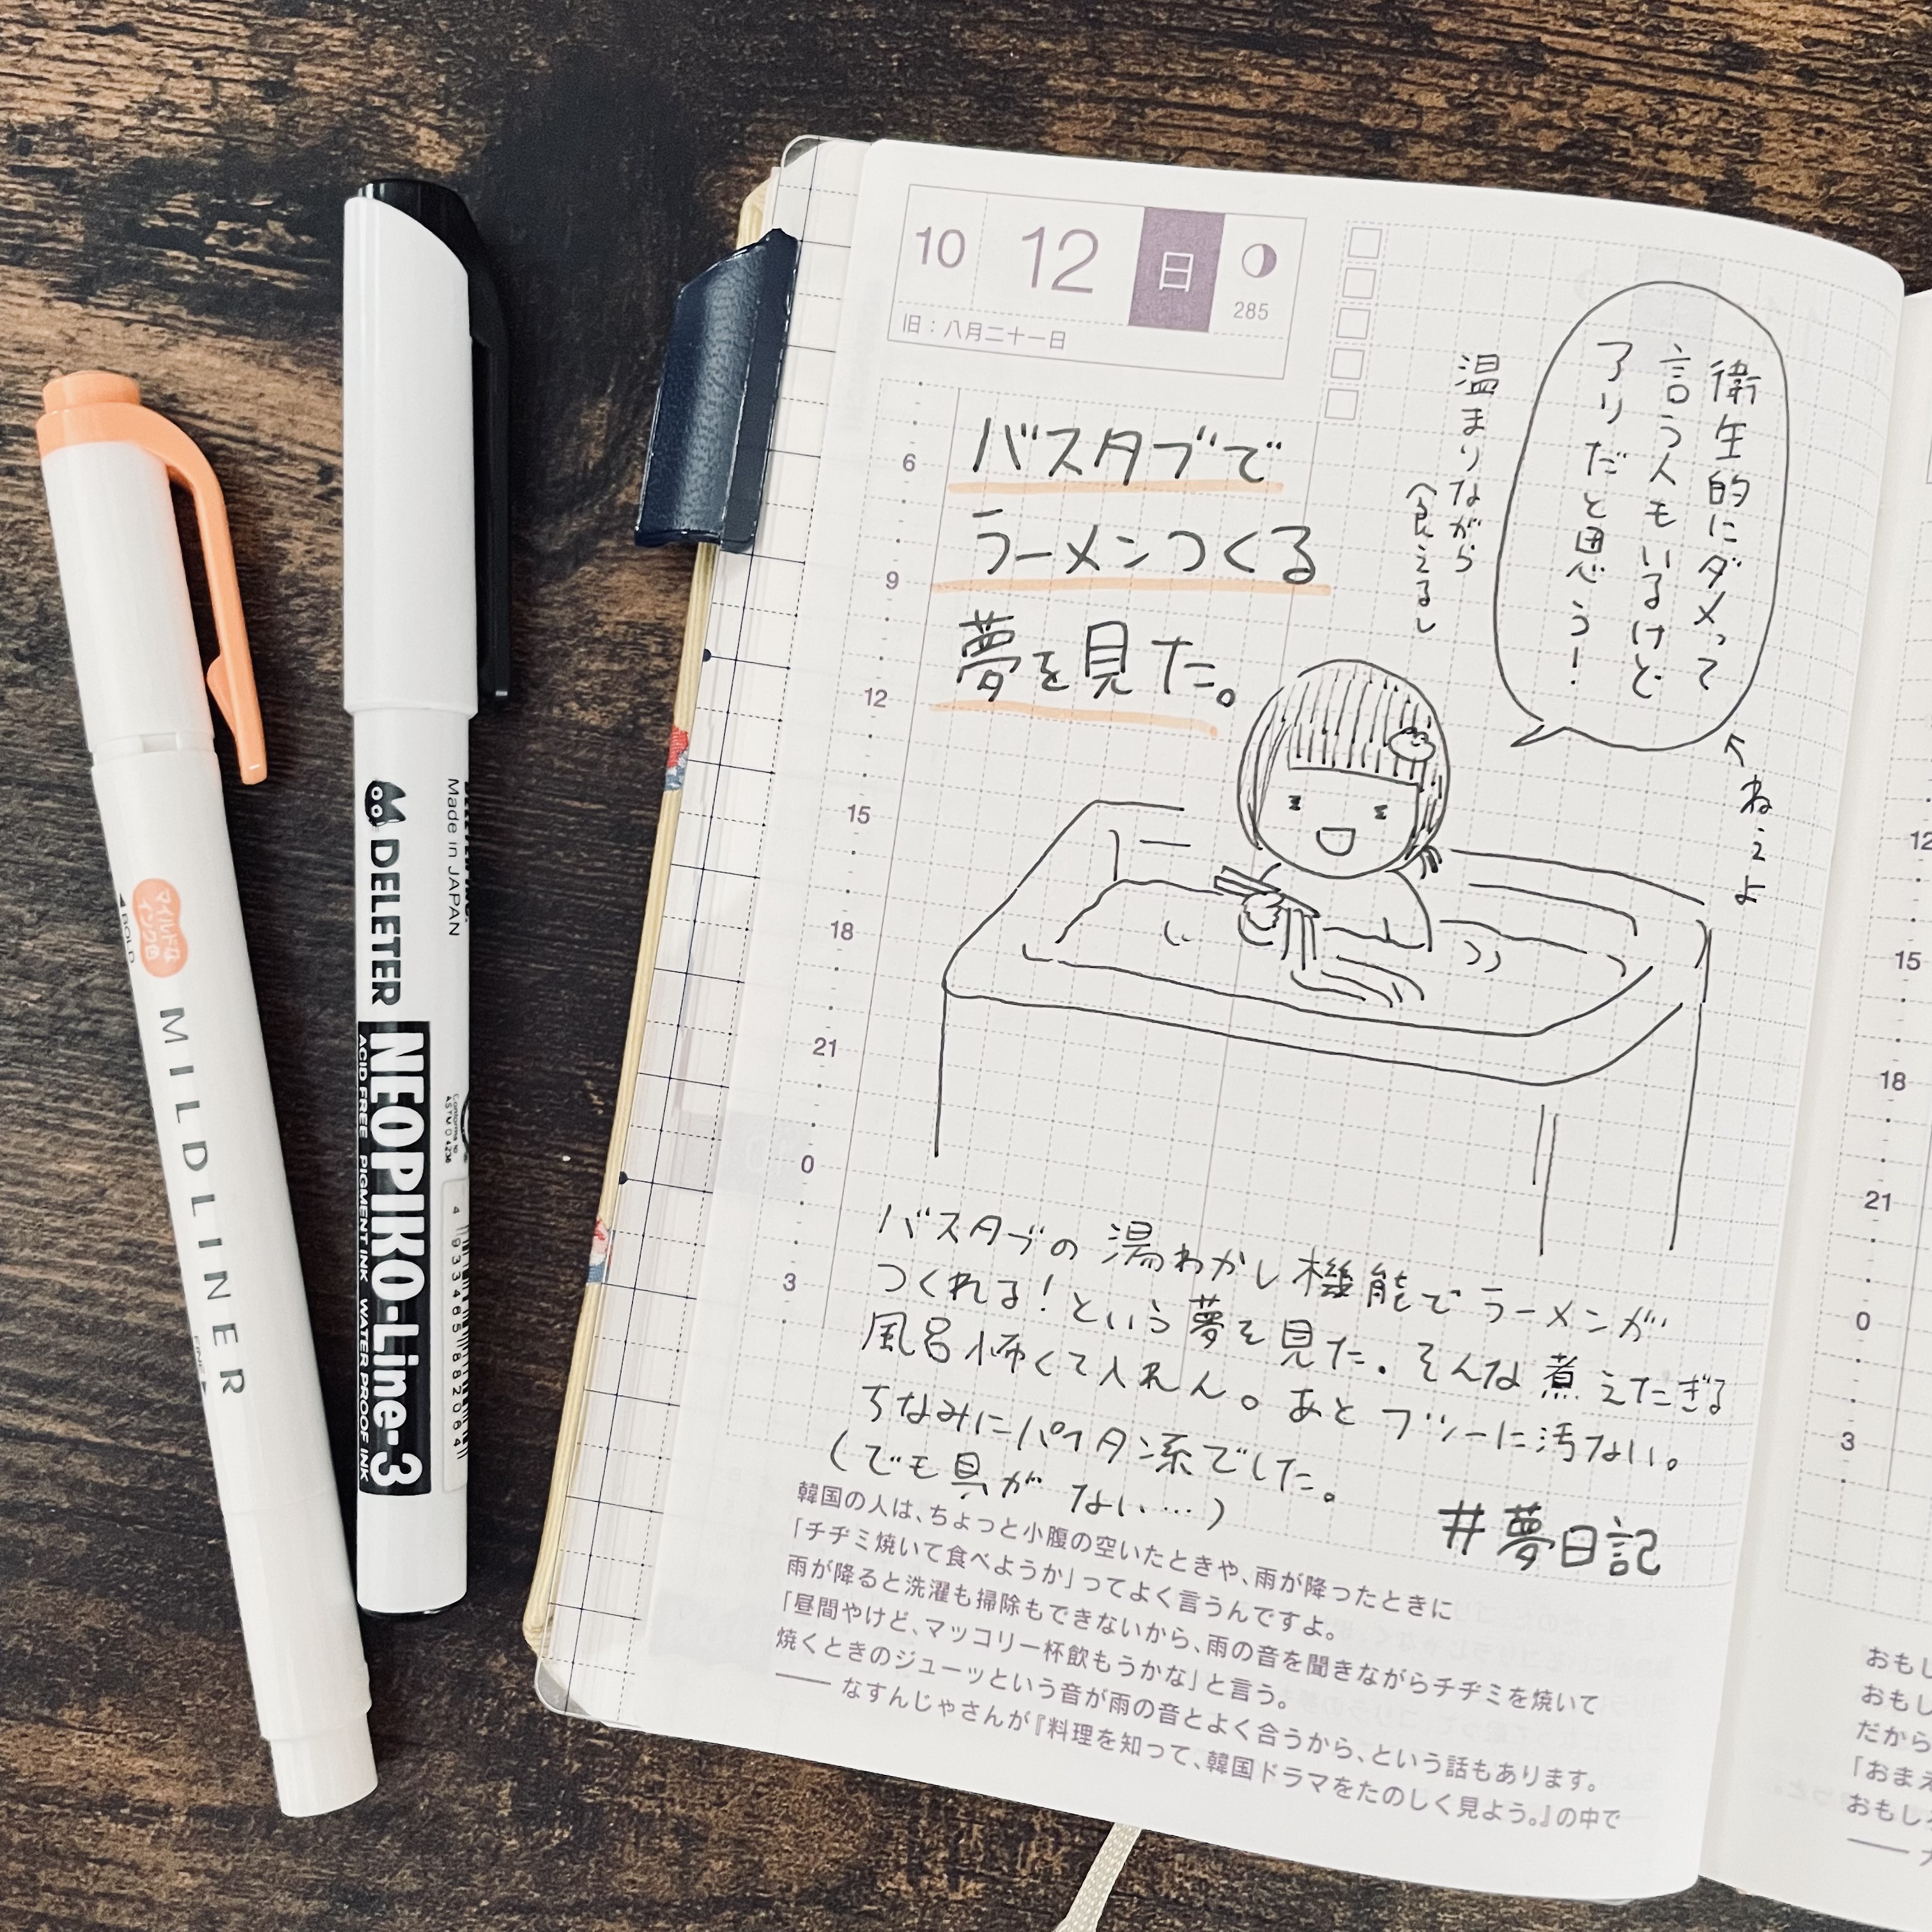 10
12
日
285
旧：八月二十一日
バスタブで
ラーメンつくる
夢を見た。
衛生的にダメって
言う人もいるけど
アリだと思う！
温まりながら
食えるし
←ねぇよ
6
9
12
15
18
21
0
3
バスタブの湯わかし機能でラーメンが
つくれる！という夢を見た。そんな煮えたぎる
風呂怖くて入れん。あとフツーに汚ない。
ちなみにパイタン系でした。
（でも具がない…）
#夢日記
韓国の人は、ちょっと小腹の空いたときや、雨が降ったときに
「チヂミ焼いて食べようか」ってよく言うんですよ。
雨が降ると洗濯も掃除もできないから、雨の音を聞きながらチヂミを焼いて
「昼間やけど、マッコリ一杯飲もうかな」と言う。
焼くときのジューッという音が雨の音とよく合うから、という話もあります。
―― なすんじゃさんが『料理を知って、韓国ドラマをたのしく見よう。』の中で
12
15
18
21
0
3
おもし
おもし
だから
「おまえ
おもしろ
マイルドな
インク色
BOLD
MILDLINER
FINE
Made in JAPAN
DELETER
NEOPIKO-Line-3
ACID FREE PIGMENT INK WATER PROOF INK
Conforms to
ASTM D 4236
4 933465 882064